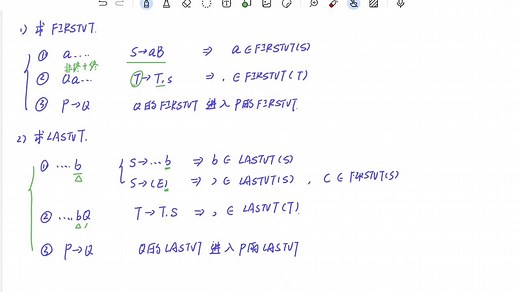 1) 求 FIRSTVT.
① a.... S→aB ⇒ a∈FIRSTVT(S)
② Qa... T→T,S ⇒ , ∈ FIRSTVT(T)
③ P→Q Q的FIRSTVT 进入 P的FIRSTVT
2) 求LASTVT.
① ....b S→...b ⇒ b∈ LASTVT(S)
S→(E) ⇒ ) ∈ LASTVT(S) , ( ∈ FIRSTVT(S)
② ...bQ T→T,S ⇒ , ∈ LASTVT(T).
③ P→Q Q的LASTVT 进入 P的LASTVT